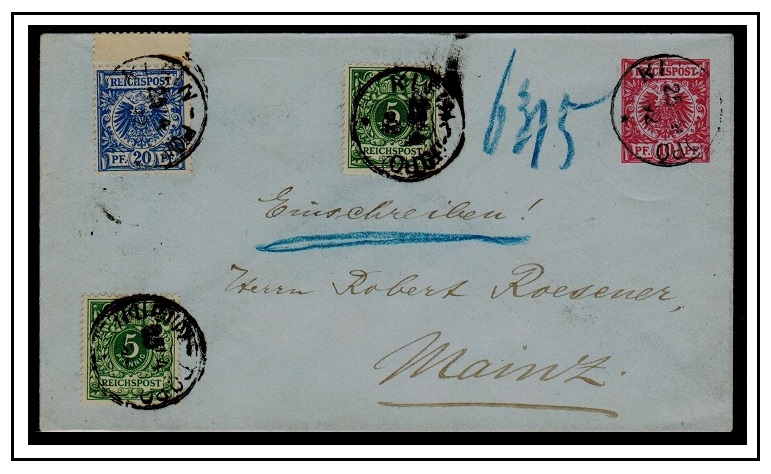 REICHSPOST
PF. 20 PF.
5
REICHSPOST
KLEIN-
POPO
REICHSPOST
PF. 10 PF.
Einschreiben!
Herrn Robert Roesener,
Mainz.
5
PFENNIG
REICHSPOST